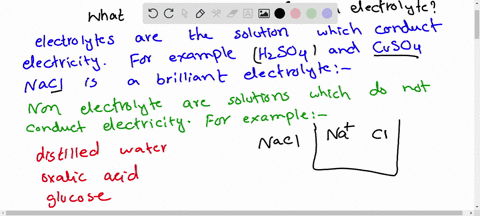 What electrolyte?
electrolytes are the solution which conduct
electricity. For example (H2SO4) and CuSO4
NaCl is a brilliant electrolyte:-
Non electrolyte are solutions which do not
conduct electricity. For example:-
distilled water
oxalic acid
glucose
NaCl Na+ Cl